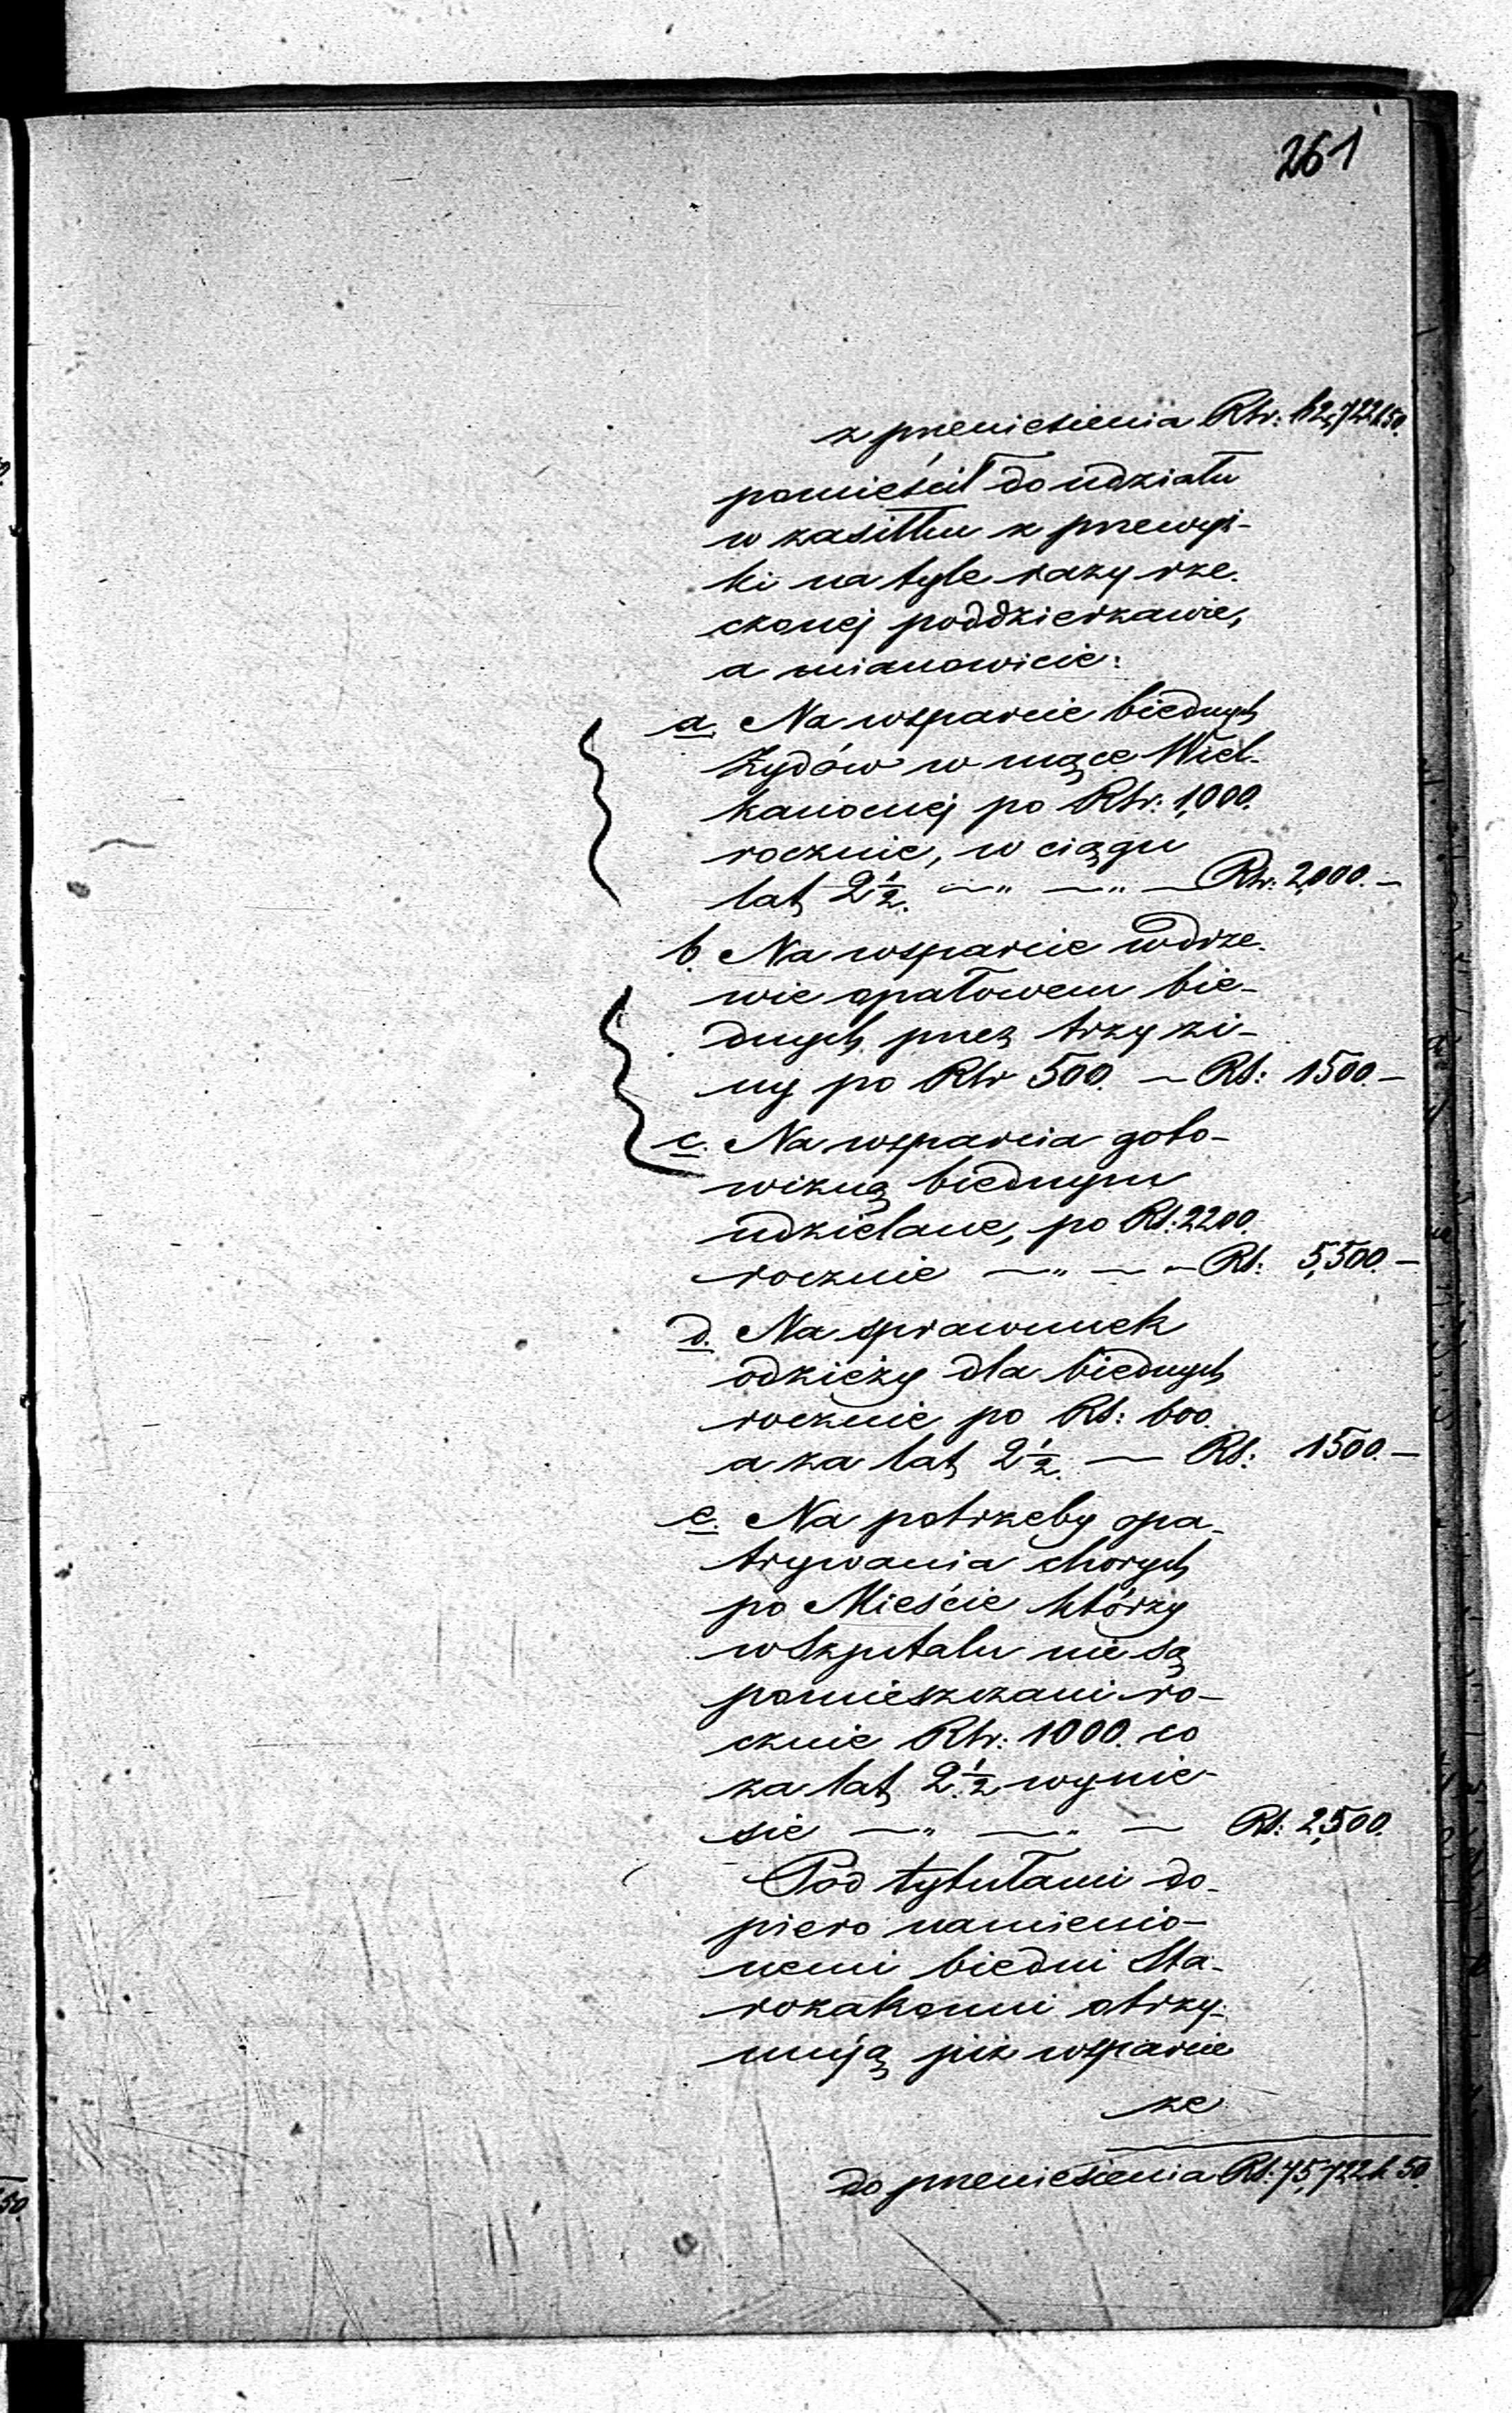 261
z przeniesienia Rbr: 62,722 k 50.
pomieścił do udziału
w zasiłku z przewyż-
ki na tyle razy rze-
czonej poddzierzawie,
a mianowicie:
a. Na wsparcie biednych
Żydów w mące Wiel-
kanocnej po Rbr: 1,000.
rocznie, w ciągu
lat 2 1/2. — „ — „ — Rbr: 2,000. —
b. Na wsparcie w drze-
wie opałowem bie-
dnych przez trzy zi-
my po Rbr 500. — RS: 1500. —
c. Na wsparcia goto-
wizną biednym
udzielane, po RS: 2200.
rocznie — „ — „ — RS: 5,500. —
d. Na sprawunek
odzieży dla biednych
rocznie po RS: 600.
a za lat 2 1/2. — RS: 1500. —
e. Na potrzeby opa-
trywania chorych
po Mieście którzy
w Szpitalu nie są
pomieszczani ro-
cznie Rbr: 1000. co
za lat 2 1/2 wynie-
sie — „ — „ — RS: 2,500.
Pod tytułami do-
piero namienio-
nemi biedni Sta-
rozakonni otrzy-
mują już wsparcie
ze
do przeniesienia RS: 75,722 k 50.